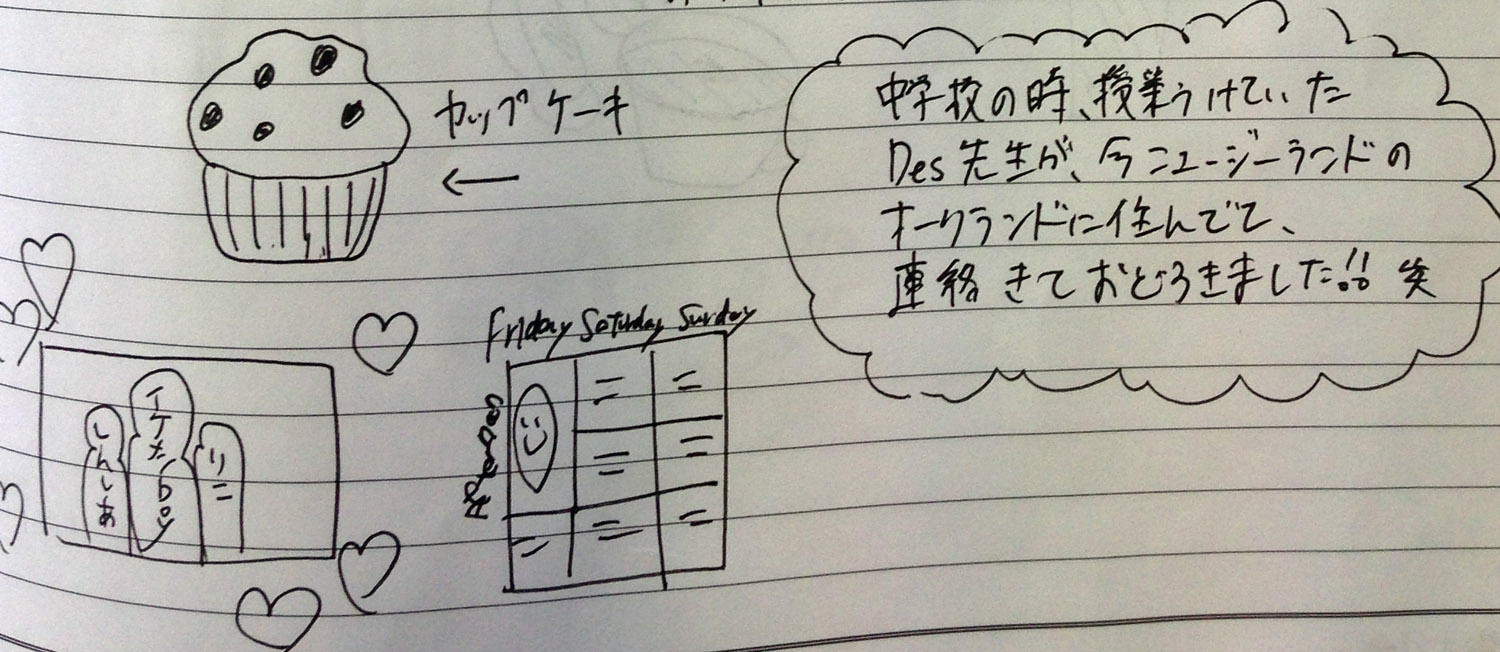 カップケーキ
中学校の時、授業うけていた
Des先生が、今ニュージーランドの
オークランドに住んでて、
連絡きておどろきました!! 笑
Friday Saturday Sunday
しんじあ
イケメboy
リニ